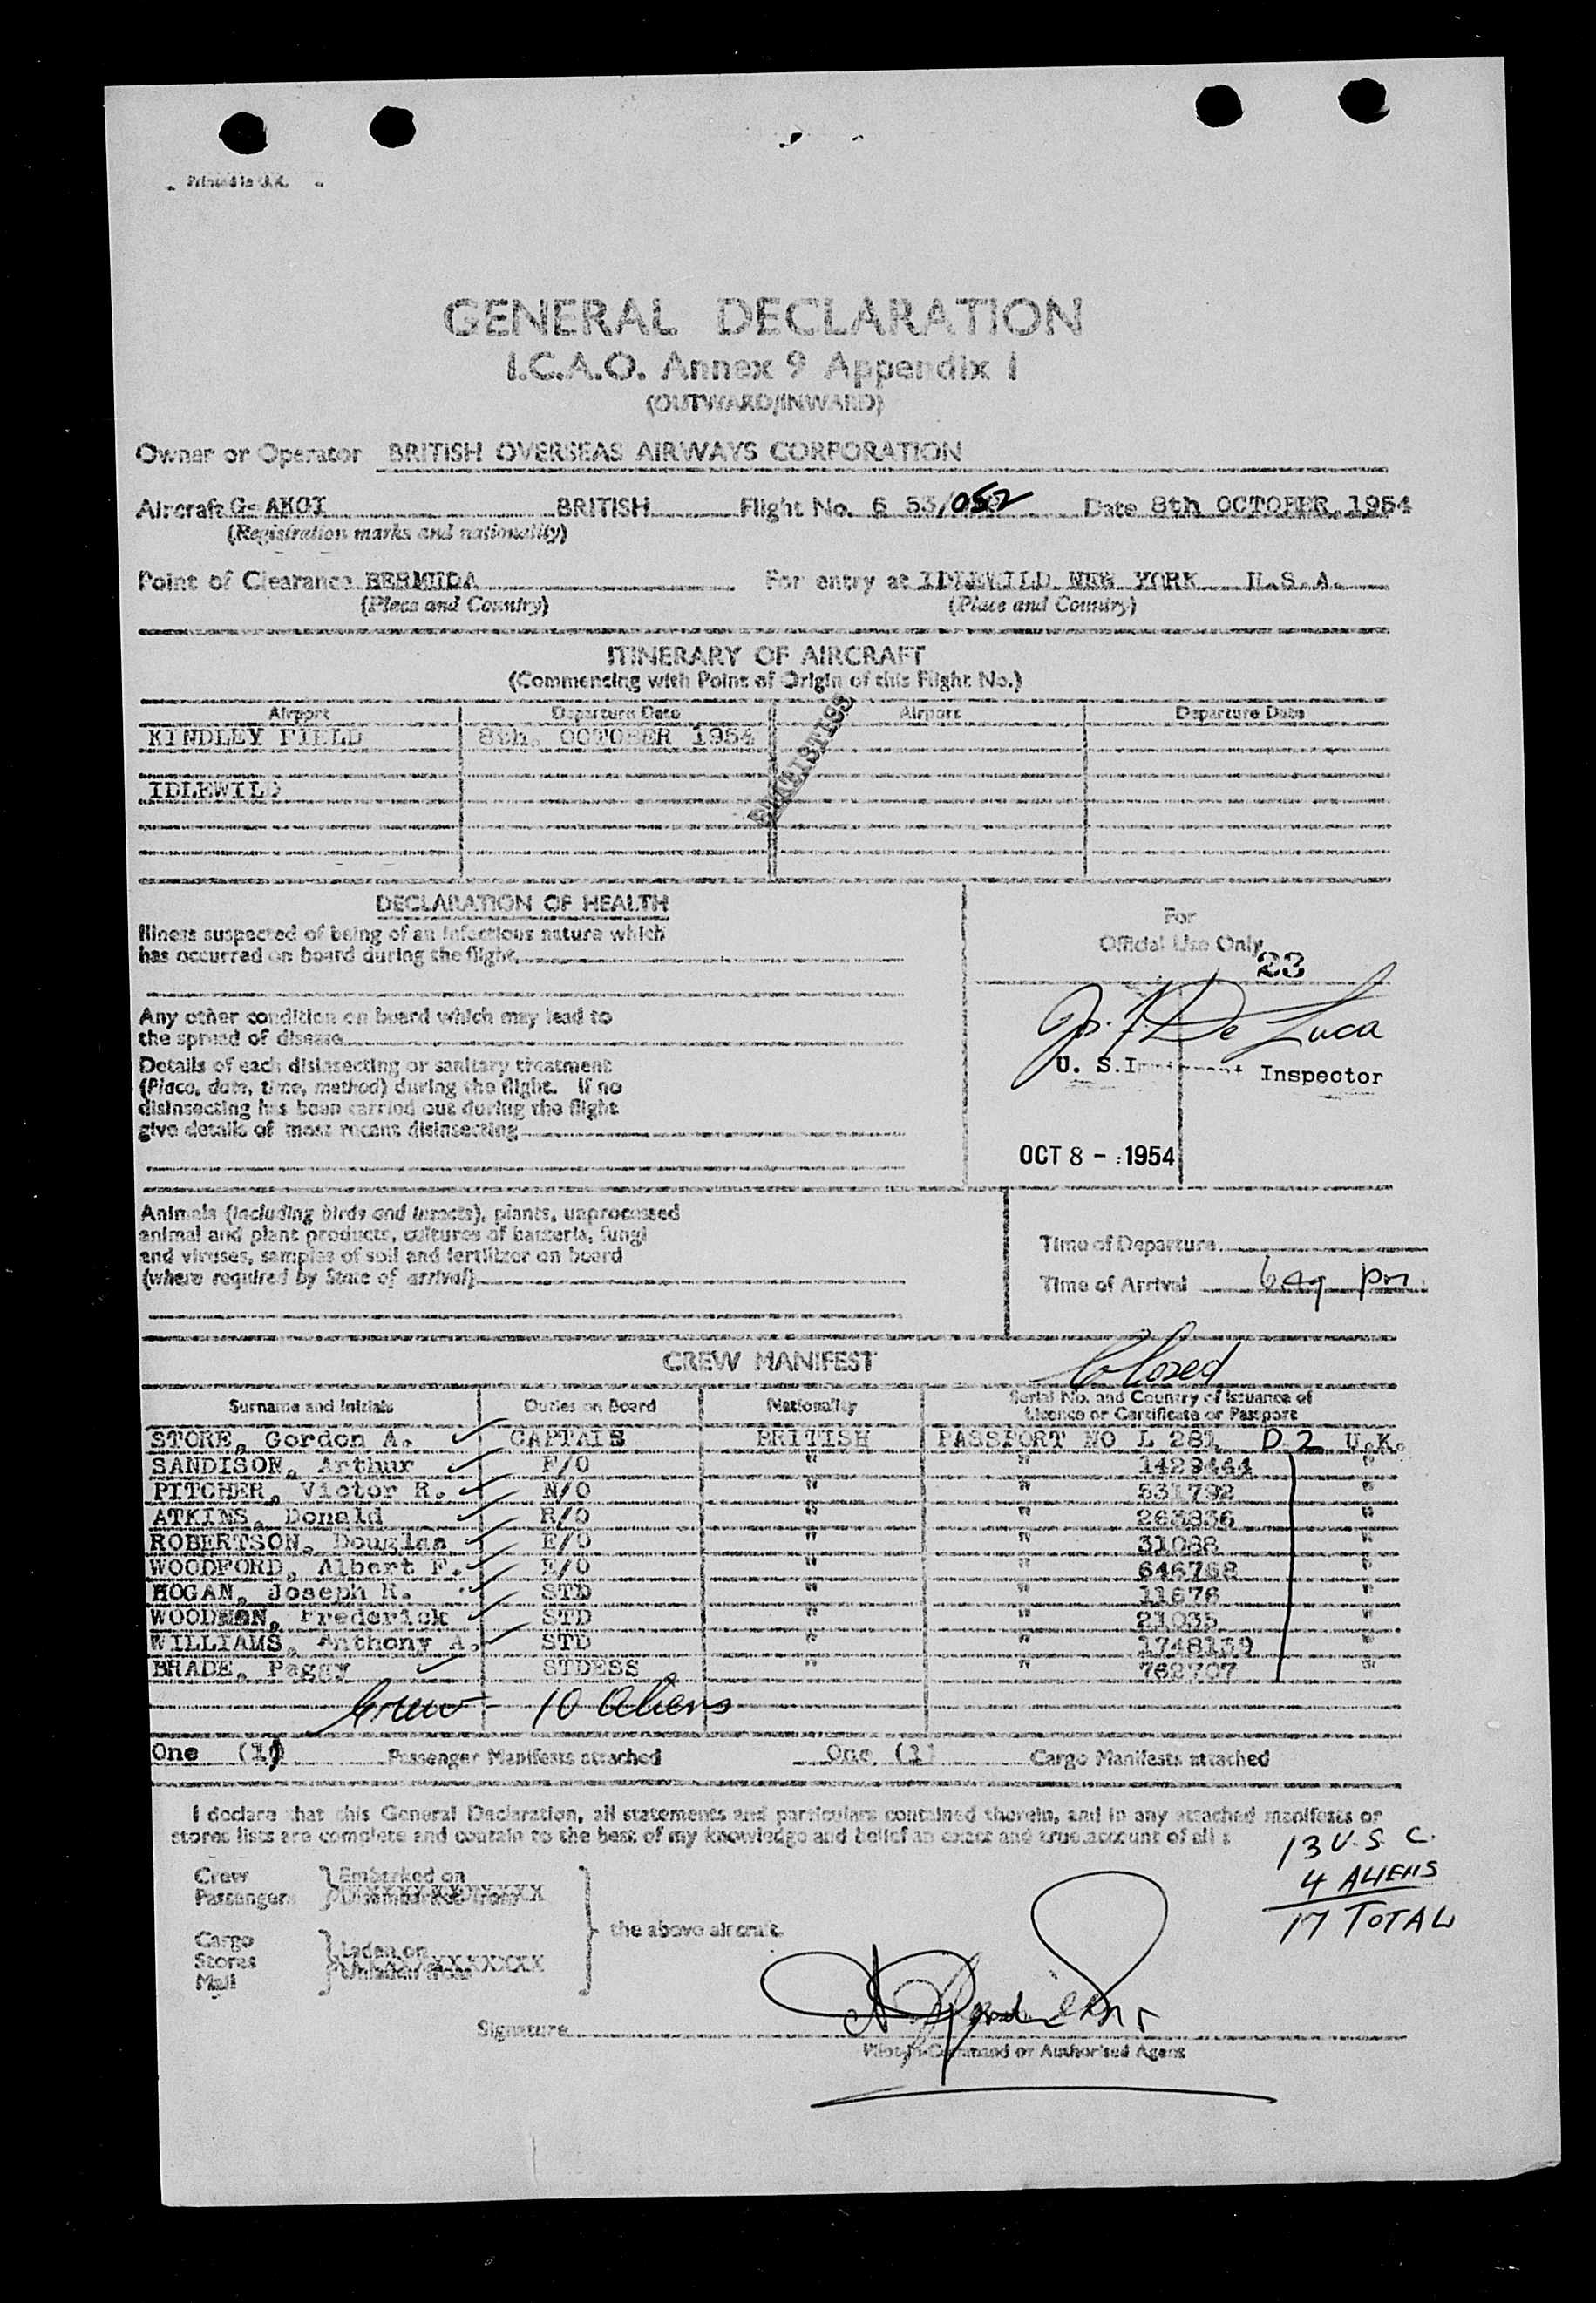 Printed in U.K.
GENERAL DECLARATION
I.C.A.O. Annex 9 Appendix 1
(OUTWARD/INWARD)
Owner or Operator BRITISH OVERSEAS AIRWAYS CORPORATION
Aircraft G- AKGI BRITISH Flight No. 6 53/052 Date 8th OCTOBER, 1954
(Registration marks and nationality)
Point of Clearance BERMUDA For entry at IDLEWILD NEW YORK U.S.A.
(Place and Country) (Place and Country)
ITINERARY OF AIRCRAFT
(Commencing with Point of Origin of this Flight No.)
Airport Departure Date Airport Departure Date
KINDLEY FIELD 8th. OCTOBER 1954
IDLEWILD
STATISTICS
DECLARATION OF HEALTH
Illness suspected of being of an infectious nature which
has occurred on board during the flight
Any other condition on board which may lead to
the spread of disease
Details of each disinsecting or sanitary treatment
(Place, date, time, method) during the flight. If no
disinsecting has been carried out during the flight
give details of most recent disinsecting
For
Official Use Only
23
De Luca
U. S. Immigrant Inspector
OCT 8 - 1954
Animals (including birds and insects), plants, unprocessed
animal and plant products, cultures of bacteria, fungi
and viruses, samples of soil and fertilizer on board
(where required by State of arrival)
Time of Departure
Time of Arrival 649 pm
CREW MANIFEST
Closed
Surname and Initials Duties on Board Nationality Serial No. and Country of Issuance of
Licence or Certificate or Passport
STORE, Gordon A. CAPTAIN BRITISH PASSPORT NO L 281 D.2 U.K.
SANDISON, Arthur F/O " " 1429444 "
PITCHER, Victor R. N/O " " 531792 "
ATKINS, Donald R/O " " 263836 "
ROBERTSON, Douglas E/O " " 31088 "
WOODFORD, Albert F. E/O " " 646768 "
HOGAN, Joseph R. STD " " 11676 "
WOODMAN, Frederick STD " " 21035 "
WILLIAMS, Anthony A. STD " " 1748139 "
BRADE, Peggy STDESS " " 762707 "
Crew - 10 aliens
One (1) Passenger Manifests attached One (1) Cargo Manifests attached
I declare that this General Declaration, all statements and particulars contained therein, and in any attached manifests or
stores lists are complete and contain to the best of my knowledge and belief an exact and true account of all :
13 U.S.C.
4 ALIENS
17 TOTAL
Crew
Passengers
Embarked on
Disembarked from
Cargo
Stores
Mail
Laden on
Unladen from
the above aircraft.
Signature
Pilot-in-Command or Authorised Agent